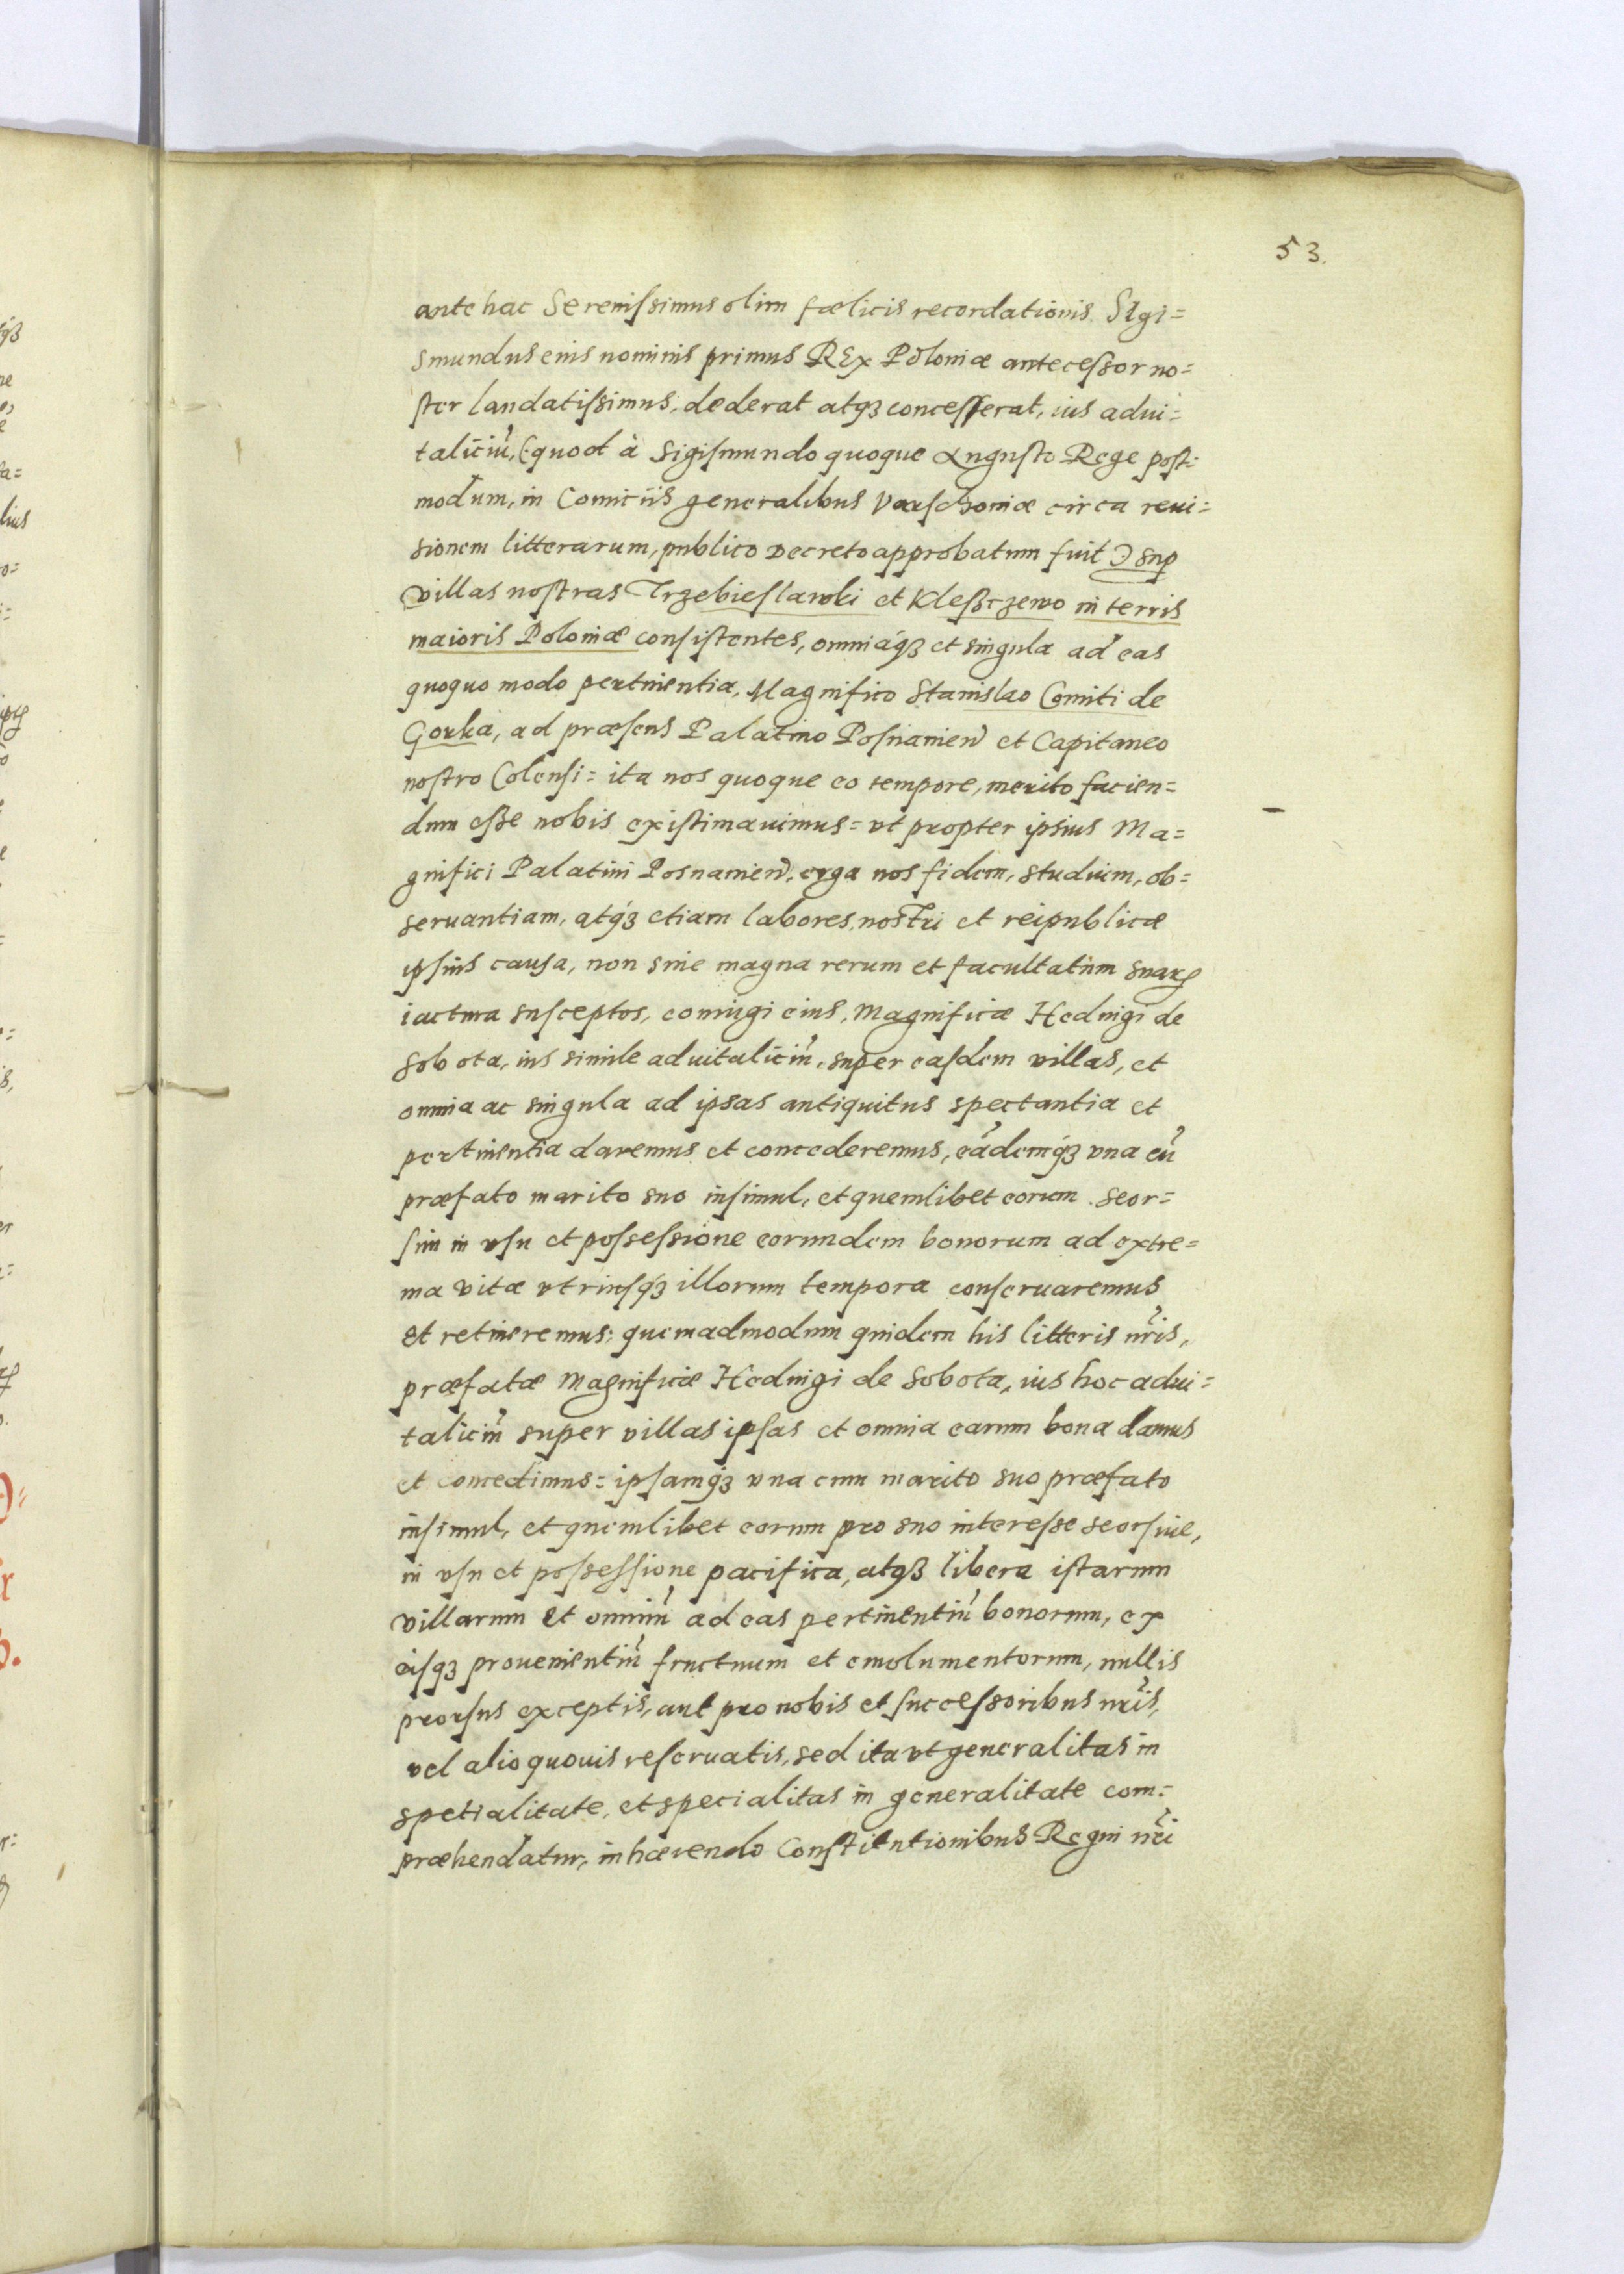 53.
antehac Serenissimus olim fœlicis recordationis SIgi=
smundus eius nominis primus REx Poloniæ antecessor no=
ster laudatissimus, dederat atqꝫ concesserat, ius adui=
taliciũ, (quod à Sigismundo quoque Augusto Rege post=
modum, in Comitiis generalibus Varschouiæ circa reui=
sionem litterarum, publico decreto approbatum fuit) suꝑ
villas nostras Trzebieslawki et Klesszczewo in terris
maioris Poloniæ consistentes, omniáqꝫ et singula ad eas
quoquo modo pertinentia, Magnifico Stanislao Comiti de
Gorka, ad præsens Palatino Posnanien̄ et Capitaneo
nostro Colensi= ita nos quoque eo tempore, merito facien=
dum esse nobis existimauimus= vt propter ipsius Ma=
gnifici Palatini Posnanien̄, erga nos fidem, studium, ob=
seruantiam, atq́ꝫ etiam labores, nostri et reipublicæ
ipsius causa, non sine magna rerum et facultatum suaꝝ
iactura susceptos, coniugi eius, Magnificæ Heduigi de
Sobota, ius simile aduitaliciũ, super easdem villas, et
omnia ac singula ad ipsas antiquitus spectantia et
pertinentia daremus et concederemus, eãdemq́ꝫ vna cũ
præfato marito suo insimul, et quemlibet eorum seor=
sim in vsu et possessione eorundem bonorum ad extre=
ma vitæ vtriusq́ꝫ illorum tempora conseruaremus
et retineremus: quemadmodum quidem his litteris nr̃is,
præfatæ Magnificæ Heduigi de Sobota, ius hoc adui=
taliciũ super villas ipsas et omnia earum bona damus
et concedimus= ipsamq́ꝫ vna cum marito suo præfato
insimul, et quemlibet eorum pro suo interesse seorsiue,
in vsu et possessione pacifica, atqꝫ libera istarum
villarum et omniũ ad eas pertinentiũ bonorum, ex
eisqꝫ prouenientiũ fructuum et emolumentorum, nullis
prorsus exceptis, aut pro nobis et successoribus nr̃is,
vel alio quouis reseruatis, sed ita vt generalitas in
spetialitate, et specialitas in generalitate com=
præhendatur, inhærendo Constitutionibus Regni nr̃i